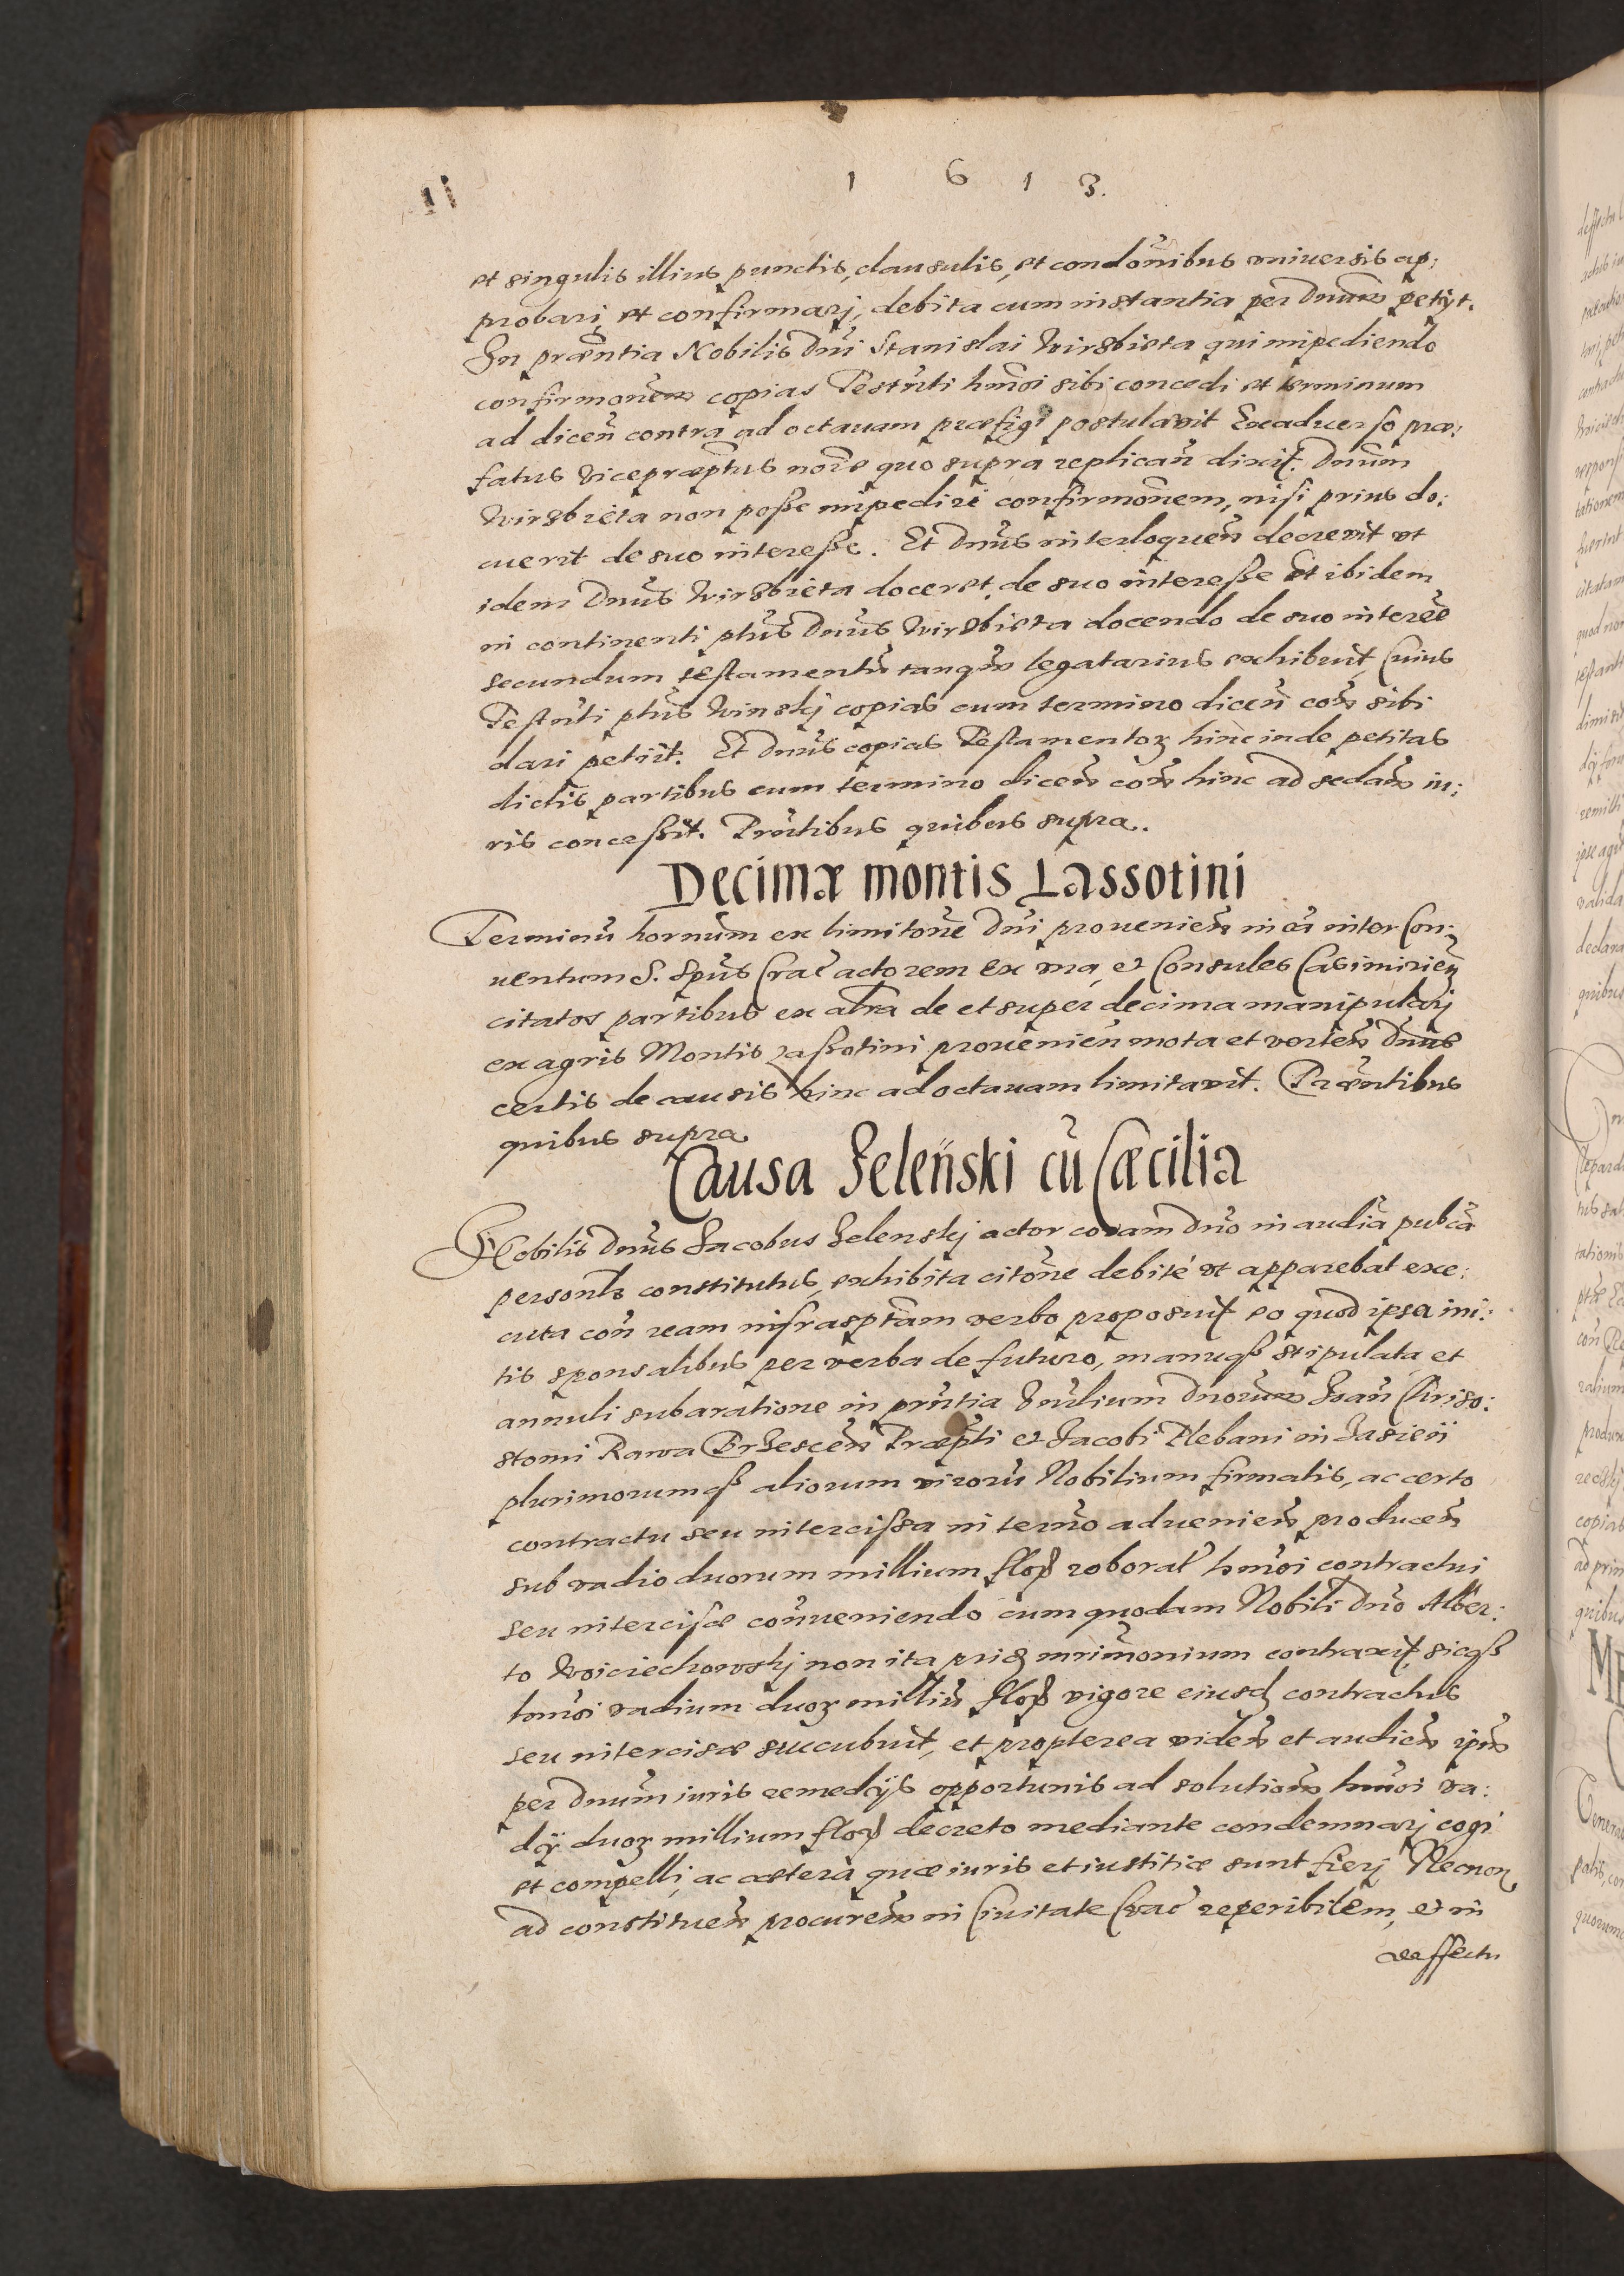 1 6 1 3.
11
et singulis illius punctis, clausulis, et condõnibus vniuersis ap:
probari, et confirmarj, debita cum instantia per Dnum petijt.
In præntia Nobilis Dni Stanislai Wirsbieta qui impediendo
confirmonem copias Testnti hmoi sibi concedi et terminum
ad dicen contra ad octauam præfigi postulauit Exaduerso præ:
fatus vicepræptus noie quo supra replican dixit. Dnum
Wirsbieta non poße impediri confirmonem, nisi prius do:
cuerit de suo intereße. Et Dnus interloquen decreuit vt
idem Dnus Wirsbieta doceret de suo intereße Et ibidem
in continenti ptus Dnus Wirsbieta docendo de suo interee
secundum testamentũ tanqm legatarius exhibuit, Cuius
Testnti ptus Winskj copias cum termino dicen con sibi
dari petiit. Et Dnus copias Testamentoꝝ hinc inde petitas
dictis partibus cum termino dicen con hinc ad sedam iu:
ris conceßit. Prntibus quibus supra.
Decimæ montis Lassotini
Terminũ hornum ex limitone Dni prouenien in ca inter Con:
uentum S. Spus Crac actorem ex vna, et Consules Casimirien
citatos partibus ex altra de et super decima manipularj
ex agris Montis Laßotini prouenien mota et verten Dnus
certis de causis hinc ad octauam limitauit. Præntibus
quibus supra
Causa Zelenski cũ Cæcilia
Nobilis Dnus Jacobus Zelenskj actor coram Dno in audia pubca
personlr constitutus, exhibita citone debité vt apparebat exe:
cuta con ream infrasptam verbo proposuit eo quod ipsa ini:
tis sponsalibus per verba de futuro, manuqȝ stipulata et
annuli subaratione in prntia Vnrlium Dnorum Joan Chriso:
stomi Rawa Brzescen Præpti et Jacobi Plebani in Jasien
plurimorumqȝ aliorum virorũ Nobilium firmatis, ac certo
contractu seu intercißa in termo aduenien producen
sub vadio duorum millium flor roborat hmoi contractui
seu intercisæ conueniendo cum quodam Nobili Dno Alber:
to Woiciechowskj non ita prid mrimonium contraxit, sicqȝ
hmoi vadium duoꝝ milliũ flor vigore eiusd contractus
seu intercisæ succubuit, et propterea viden et audien ipm
per Dnum iuris remedijs opportunis ad solutionm hmoi va:
dij duoꝝ millium flor decreto mediante condemnarj cogi
et compelli, ac cætera quæ iuris et iustitiæ sunt fierj Necnon
ad constituen procurem in Ciuitate Crac reperibilem, et in
deffectu